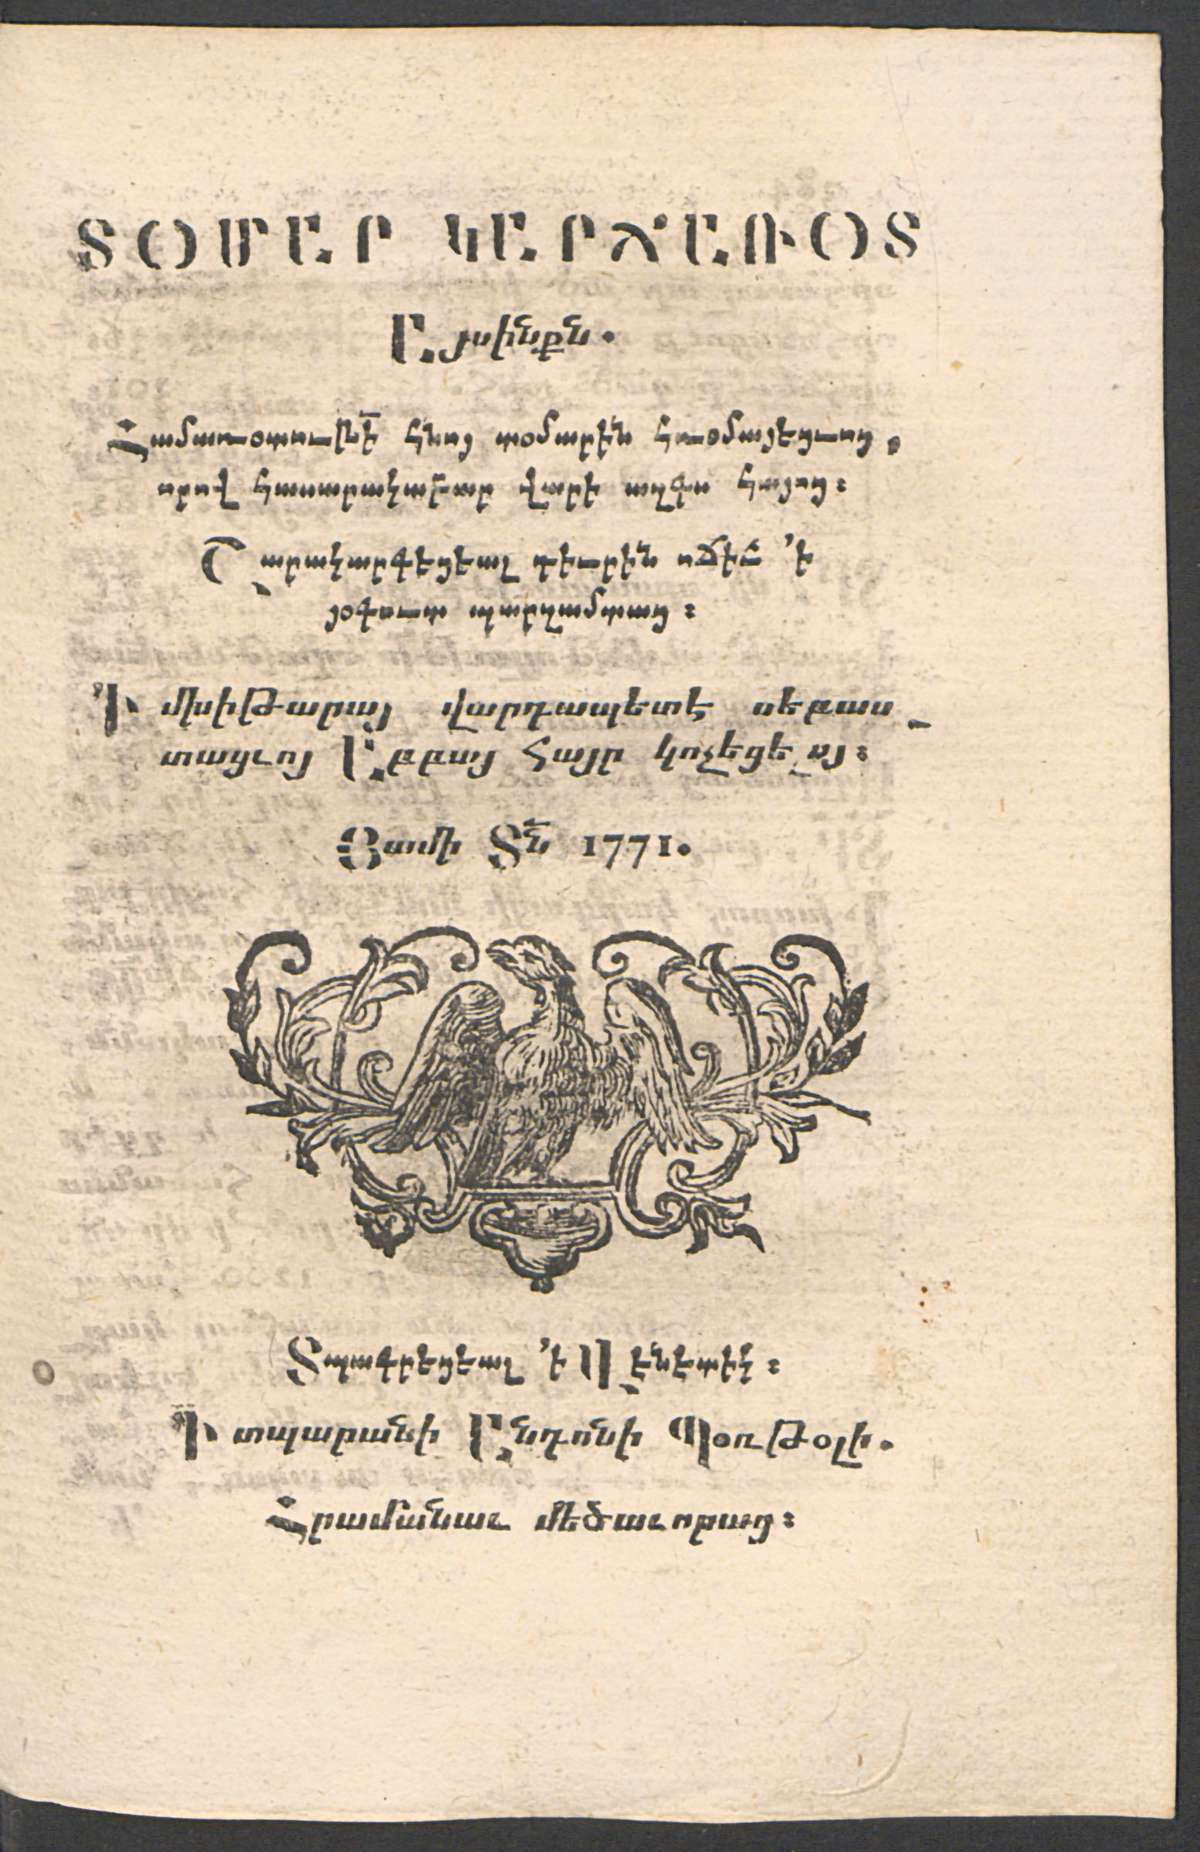 ՏՕՄԱՐ ԿԱՐՃԱՌՕՏ
Այսինքն.
Համառօտութի՟ հնոյ տօմարին հռօմայեցւոց,
որով հասարակաբար վարի ազգս հայոց։
Շարակարգեցեալ դիւրին ոճիւ ՚ի
յօգուտ պարզամտաց։
Ի մխիթարայ վարդապետէ սեբաս_
տացւոյ Աբբայ Հայր կոչեցելոյ։
Յամի Տն՟ 1771.
Տպագրեցեալ ՚ի Վէնէտիկ։
Ի տպարանի Անդոնի Պօռթօլի.
Հրամանաւ մեծաւորաց։